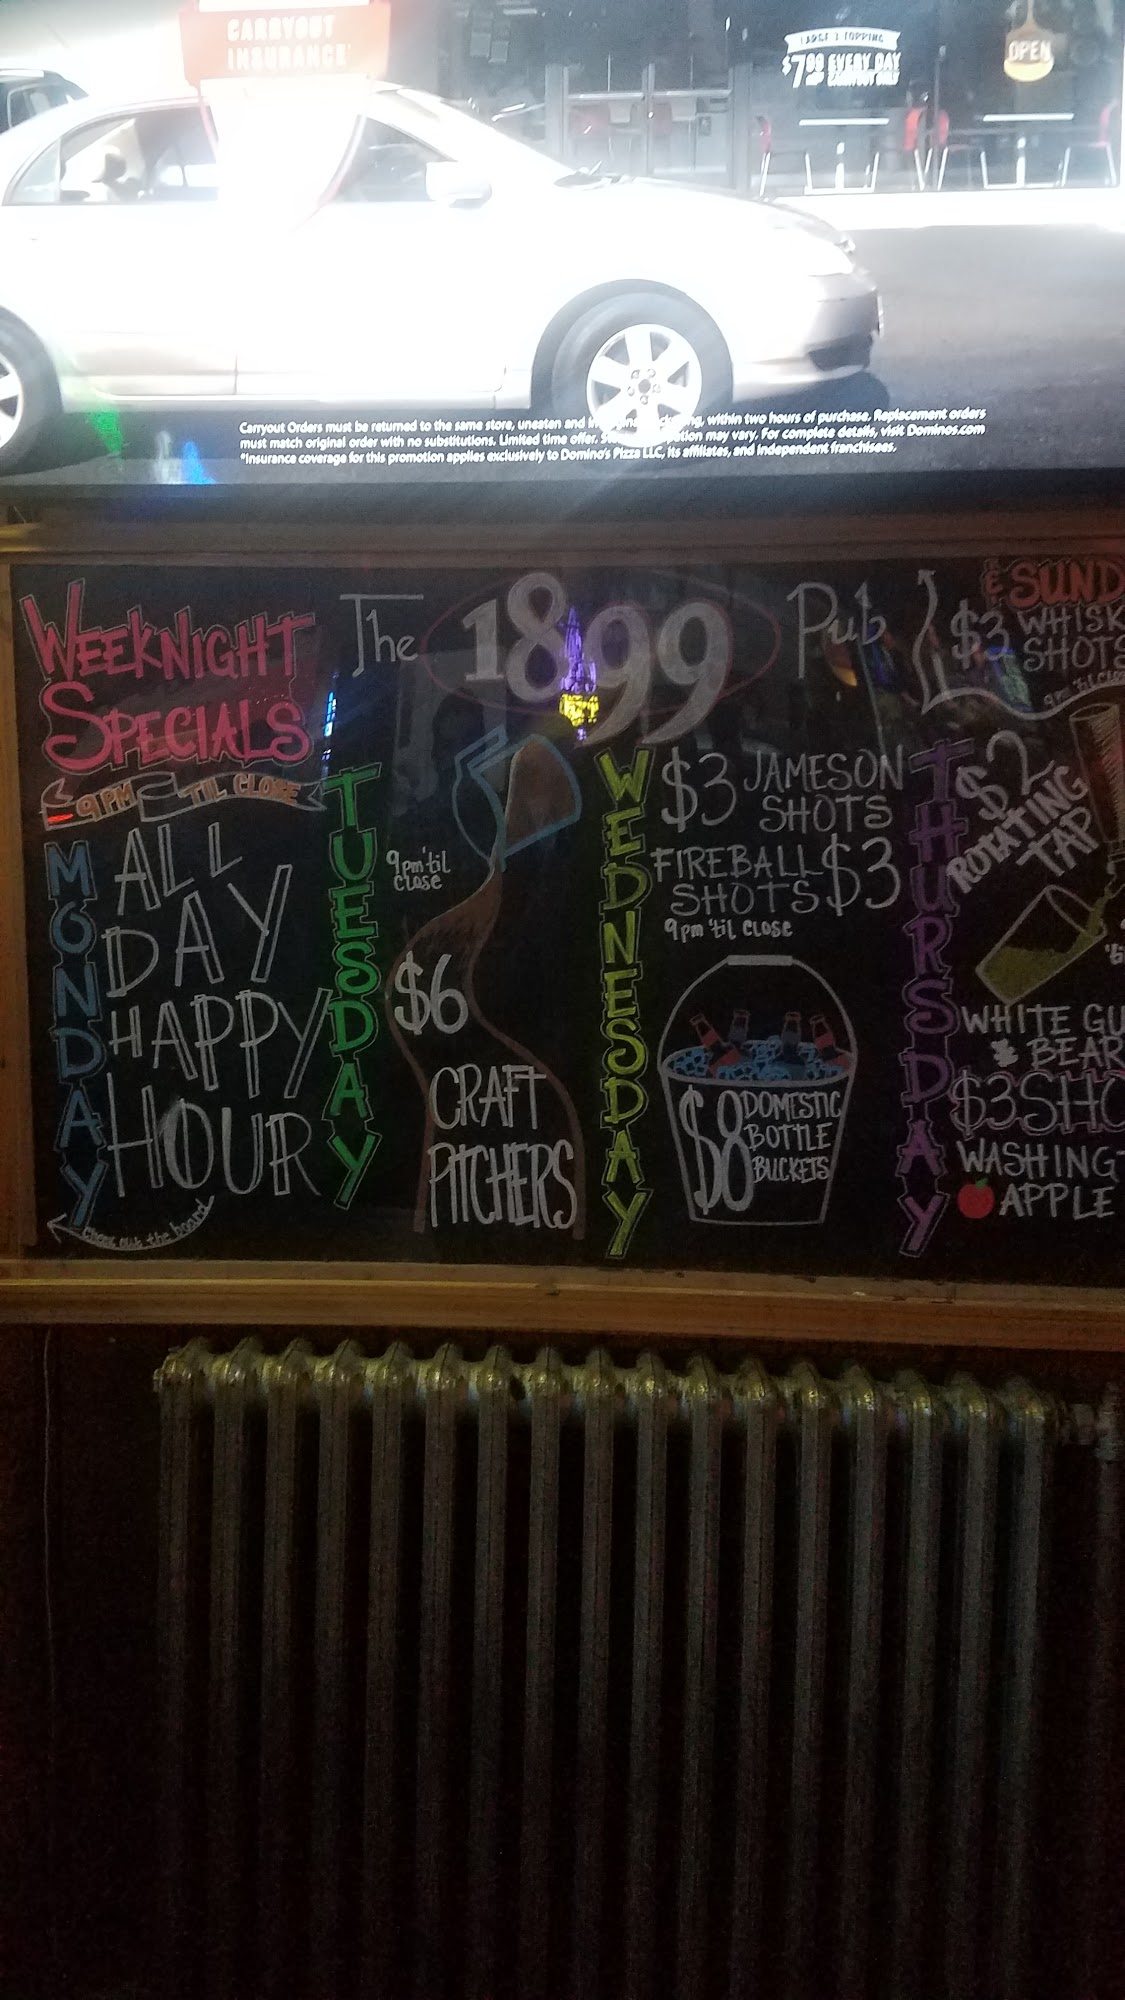 CARRYOUT
INSURANCE
LARGE 1 TOPPING
$7.99 EVERY DAY
CARRYOUT ONLY
OPEN
Carryout Orders must be returned to the same store, uneaten and in within two hours of purchase. Replacement orders
must match original order with no substitutions. Limited time offer. may vary. For complete details, visit Dominos.com
*Insurance coverage for this promotion applies exclusively to Domino's Pizza LLC, its affiliates, and independent franchisees.
WEEKNIGHT
SPECIALS
9PM 'TIL CLOSE
The 1899 Pub
MONDAY
ALL
DAY
HAPPY
HOUR
check out the board
TUESDAY
9pm 'til
close
$6
CRAFT
PITCHERS
WEDNESDAY
$3 JAMESON
SHOTS
FIREBALL $3
SHOTS
9pm 'til CLOSE
$8 DOMESTIC
BOTTLE
BUCKETS
& SUND
$3 WHISK
SHOTS
9pm 'til close
THURSDAY
$2
ROTATING
TAP
WHITE GU
& BEAR
$3 SHO
WASHING
APPLE